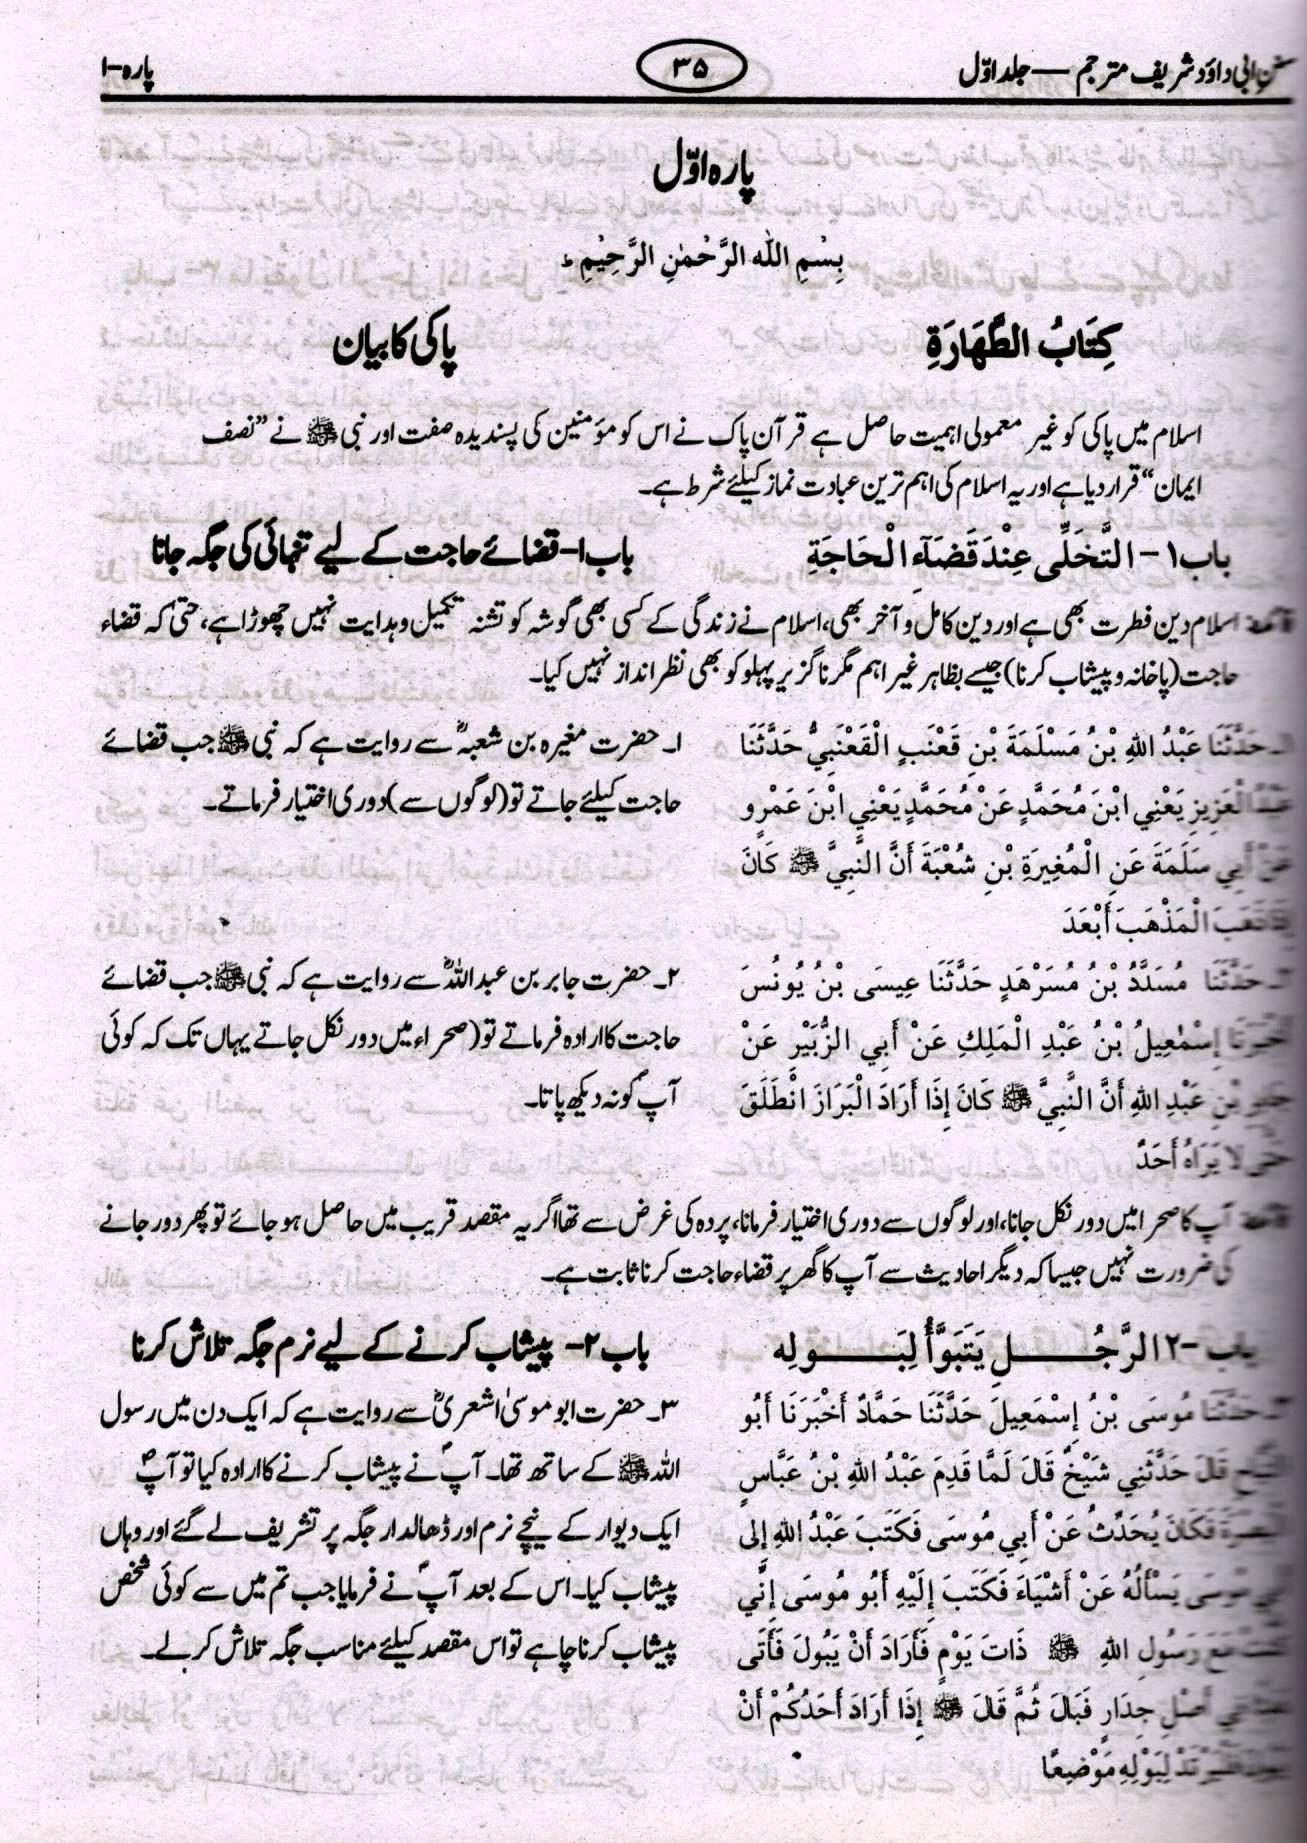 سنن ابی داؤد شریف مترجم — جلد اوّل
۳۵
پارہ-۱
پارہ اوّل
بِسْمِ اللّٰہ الرَّحْمٰنِ الرَّحِیْمِ ط
کِتَابُ الطَّهَارَةِ
پاکی کا بیان
اسلام میں پاکی کو غیر معمولی اہمیت حاصل ہے قرآن پاک نے اس کو مؤمنین کی پسندیدہ صفت اور نبی ﷺ نے ”نصف
ایمان“ قرار دیا ہے اور یہ اسلام کی اہم ترین عبادت نماز کیلئے شرط ہے۔
باب ۱- التَّخَلِّى عِنْدَ قَضَآءِ الْحَاجَةِ
باب ۱- قضائے حاجت کے لیے تنہائی کی جگہ جانا
اسلام دین فطرت بھی ہے اور دین کامل و آخر بھی، اسلام نے زندگی کے کسی بھی گوشہ کو تشنہ تکمیل و ہدایت نہیں چھوڑا ہے، حتیٰ کہ قضاء
حاجت (پاخانہ و پیشاب کرنا) جیسے بظاہر غیر اہم مگر ناگزیر پہلو کو بھی نظر انداز نہیں کیا۔
حَدَّثَنَا عَبْدُ اللهِ بْنُ مَسْلَمَةَ بْنِ قَعْنَبٍ الْقَعْنَبِيُّ حَدَّثَنَا
عَبْدُ الْعَزِيزِ يَعْنِي ابْنَ مُحَمَّدٍ عَنْ مُحَمَّدٍ يَعْنِي ابْنَ عَمْرٍو
عَنْ أَبِي سَلَمَةَ عَنِ الْمُغِيرَةِ بْنِ شُعْبَةَ أَنَّ النَّبِيَّ ﷺ كَانَ
إِذَا ذَهَبَ الْمَذْهَبَ أَبْعَدَ
۱۔ حضرت مغیرہ بن شعبہؓ سے روایت ہے کہ نبی ﷺ جب قضائے
حاجت کیلئے جاتے تو (لوگوں سے) دوری اختیار فرماتے۔
حَدَّثَنَا مُسَدَّدُ بْنُ مُسَرْهَدٍ حَدَّثَنَا عِيسَى بْنُ يُونُسَ
أَخْبَرَنَا إِسْمٰعِيلُ بْنُ عَبْدِ الْمَلِكِ عَنْ أَبِي الزُّبَيْرِ عَنْ
جَابِرِ بْنِ عَبْدِ اللهِ أَنَّ النَّبِيَّ ﷺ كَانَ إِذَا أَرَادَ الْبَرَازَ انْطَلَقَ
حَتَّى لَا يَرَاهُ أَحَدٌ
۲۔ حضرت جابر بن عبد اللہؓ سے روایت ہے کہ نبی ﷺ جب قضائے
حاجت کا ارادہ فرماتے تو (صحراء میں دور نکل جاتے یہاں تک کہ کوئی
آپؐ کو نہ دیکھ پاتا۔
آپ کا صحرا میں دور نکل جانا، اور لوگوں سے دوری اختیار فرمانا، پردہ کی غرض سے تھا اگر یہ مقصد قریب میں حاصل ہو جائے تو پھر دور جانے
کی ضرورت نہیں جیسا کہ دیگر احادیث سے آپ کا گھر پر قضاء حاجت کرنا ثابت ہے۔
باب -۲ الرَّجُــــلِ يَتَبَوَّأُ لِبَـــوْلِهِ
باب ۲- پیشاب کرنے کے لیے نرم جگہ تلاش کرنا
حَدَّثَنَا مُوسَى بْنُ إِسْمٰعِيلَ حَدَّثَنَا حَمَّادٌ أَخْبَرَنَا أَبُو
التَّيَّاحِ قَالَ حَدَّثَنِي شَيْخٌ قَالَ لَمَّا قَدِمَ عَبْدُ اللهِ بْنُ عَبَّاسٍ
الْبَصْرَةَ فَكَانَ يُحَدَّثُ عَنْ أَبِي مُوسَى فَكَتَبَ عَبْدُ اللهِ إِلَى
أَبِي مُوسَى يَسْأَلُهُ عَنْ أَشْيَاءَ فَكَتَبَ إِلَيْهِ أَبُو مُوسَى إِنِّي
كُنْتُ مَعَ رَسُولِ اللهِ ﷺ ذَاتَ يَوْمٍ فَأَرَادَ أَنْ يَبُولَ فَأَتَى
فِي أَصْلِ جِدَارٍ فَبَالَ ثُمَّ قَالَ ﷺ إِذَا أَرَادَ أَحَدُكُمْ أَنْ
يَبُولَ فَلْيَرْتَدْ لِبَوْلِهِ مَوْضِعًا
۳۔ حضرت ابو موسیٰ اشعریؓ سے روایت ہے کہ ایک دن میں رسول
اللہ ﷺ کے ساتھ تھا۔ آپؐ نے پیشاب کرنے کا ارادہ کیا تو آپؐ
ایک دیوار کے نیچے نرم اور ڈھالدار جگہ پر تشریف لے گئے اور وہاں
پیشاب کیا۔ اس کے بعد آپؐ نے فرمایا جب تم میں سے کوئی شخص
پیشاب کرنا چاہے تو اس مقصد کیلئے مناسب جگہ تلاش کر لے۔